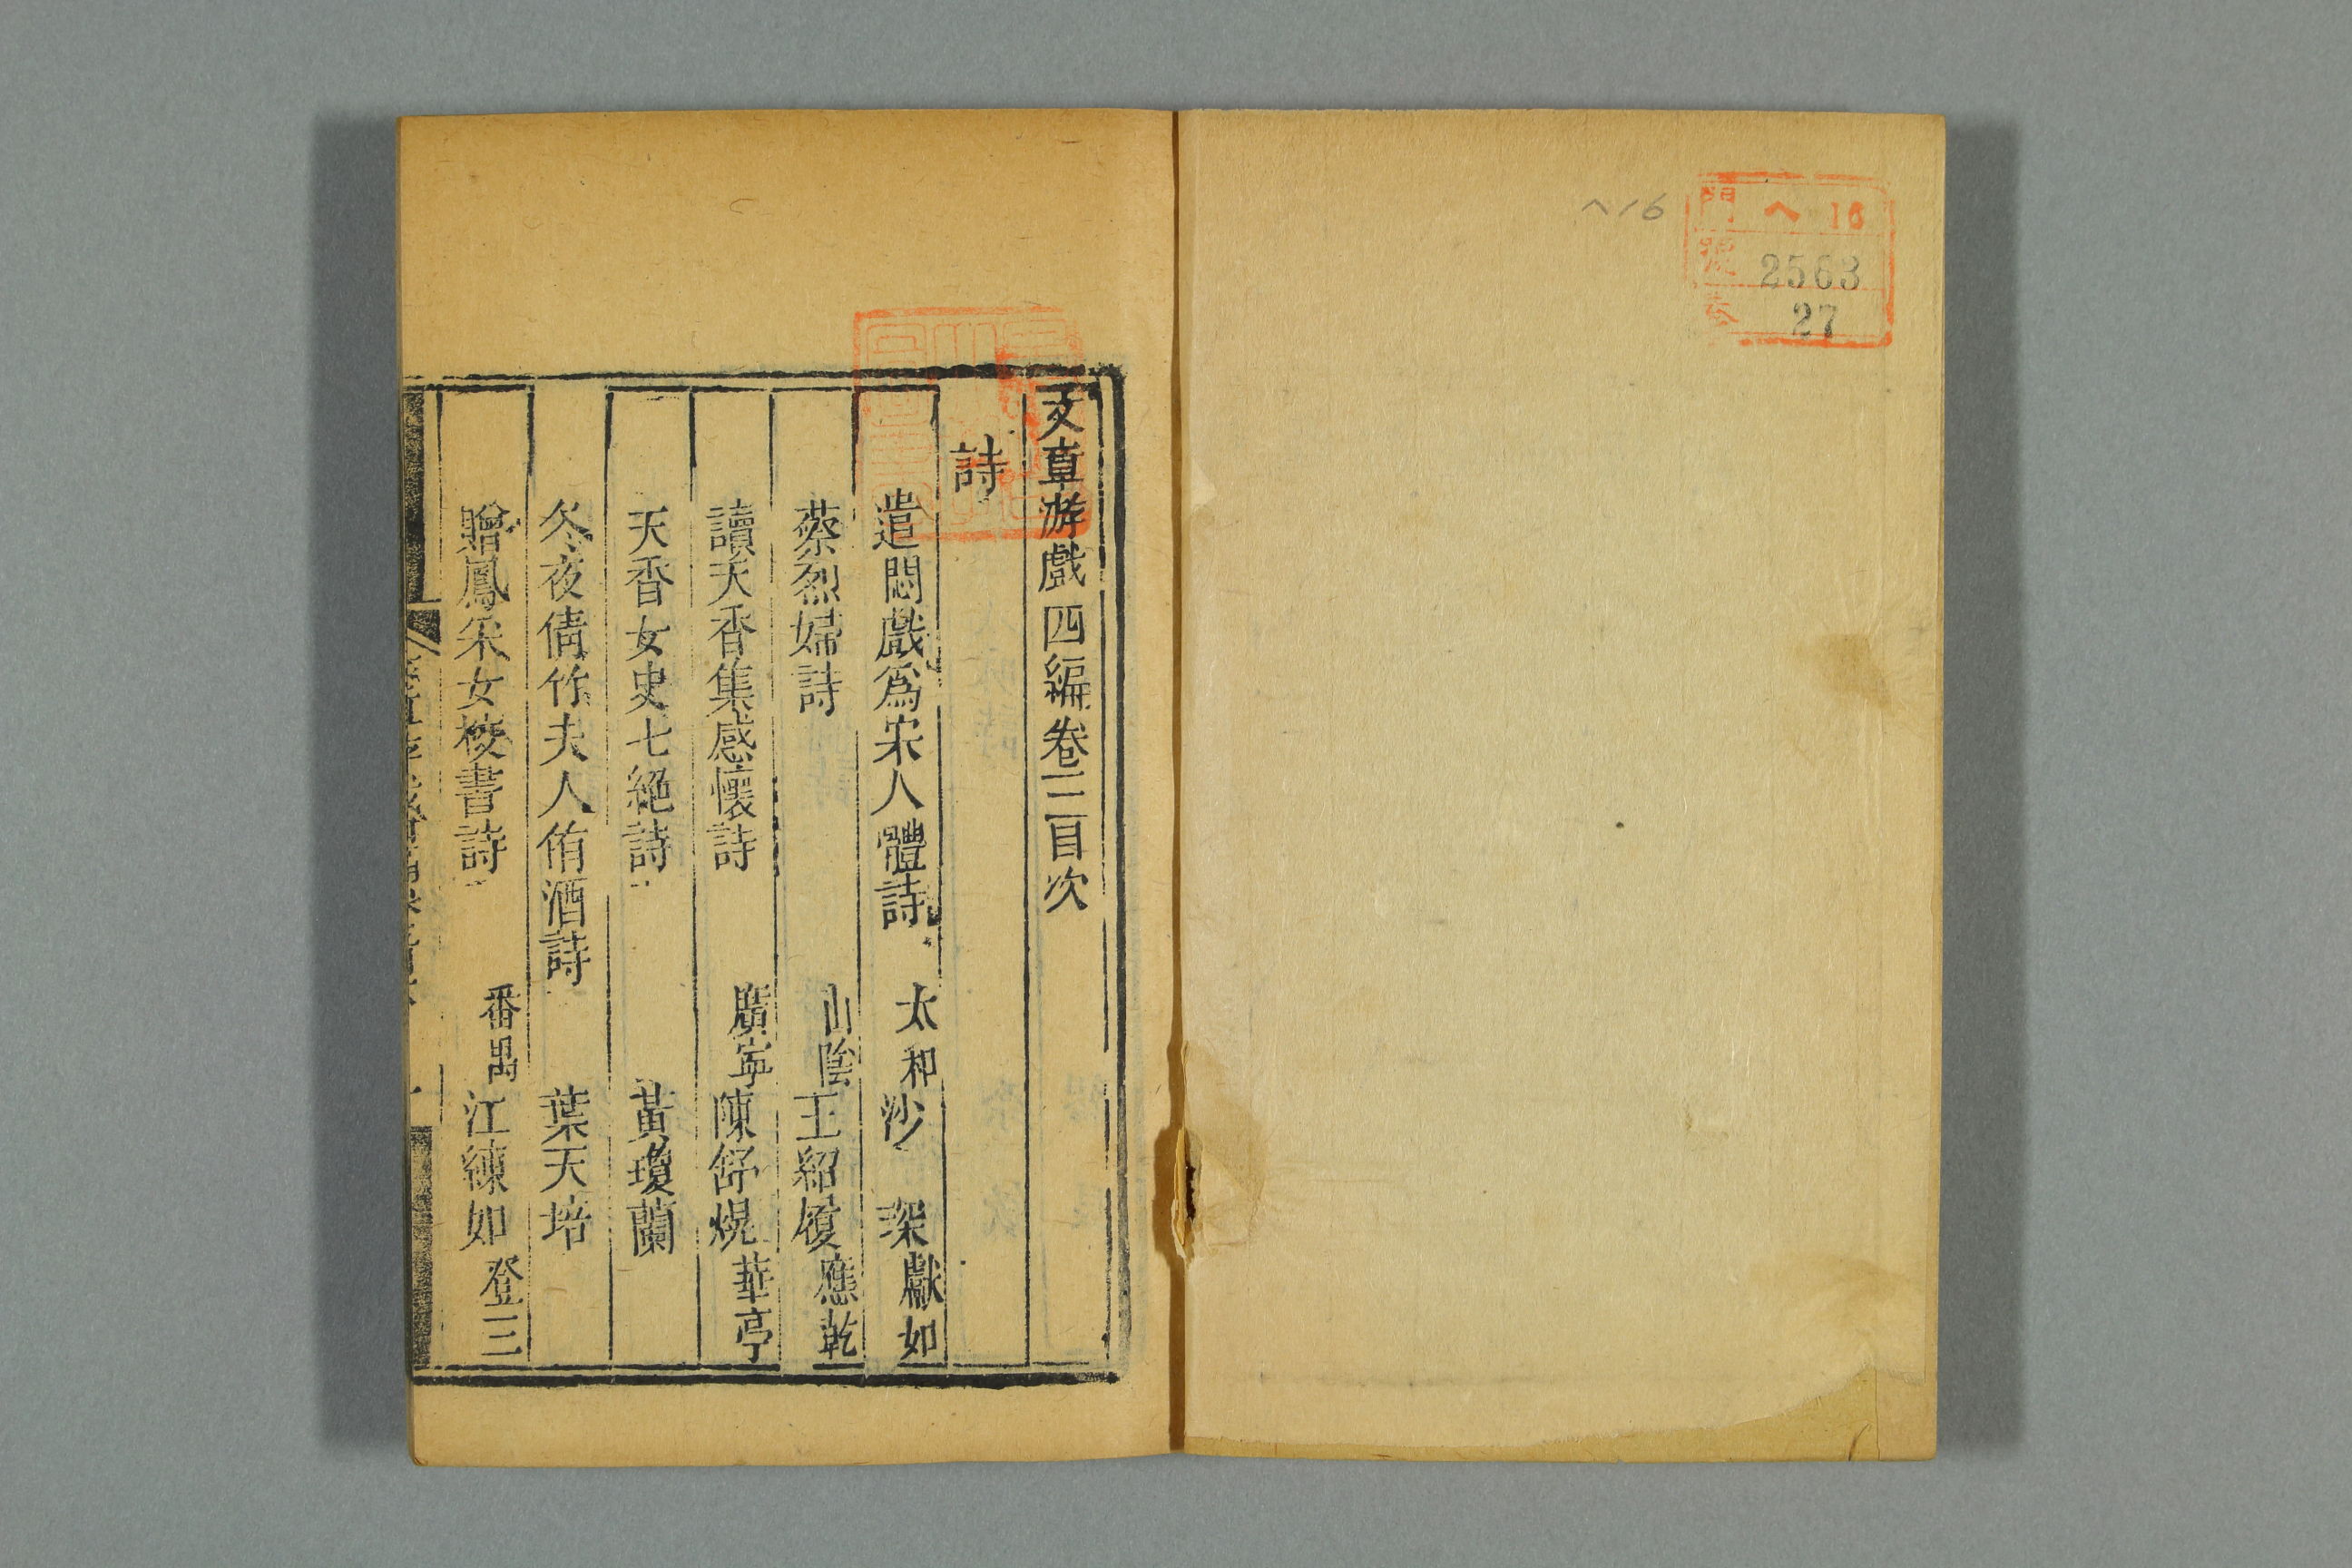 ヘ16
門 ヘ 16
號 2563
巻 27
文章游戲四編卷三目次
詩
遣悶戲爲宋人體詩 太和 沙 琛 獻如
蔡烈婦詩 山陰 王紹履 應乾
讀天香集感懷詩 廣寧 陳舒熀 華亭
天香女史七絕詩 黃瓊蘭
冬夜倩竹夫人侑酒詩 葉天培
贈鳳采女校書詩 番禺 江練如 登三